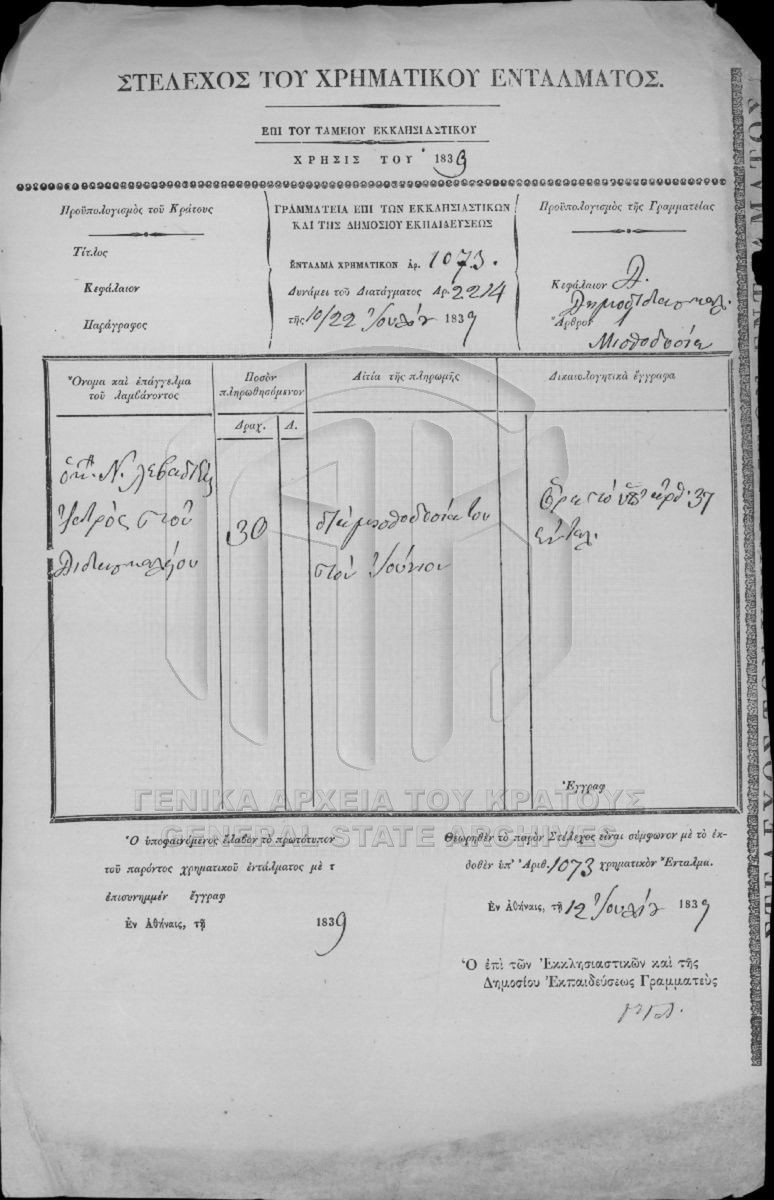 ΣΤΕΛΕΧΟΣ ΤΟΥ ΧΡΗΜΑΤΙΚΟΥ ΕΝΤΑΛΜΑΤΟΣ.
ΕΠΙ ΤΟΥ ΤΑΜΕΙΟΥ ΕΚΚΛΗΣΙΑΣΤΙΚΟΥ
ΧΡΗΣΙΣ ΤΟΥ 1839
Προϋπολογισμὸς τοῦ Κράτους
Τίτλος
Κεφάλαιον
Παράγραφος
ΓΡΑΜΜΑΤΕΙΑ ΕΠΙ ΤΩΝ ΕΚΚΛΗΣΙΑΣΤΙΚΩΝ
ΚΑΙ ΤΗΣ ΔΗΜΟΣΙΟΥ ΕΚΠΑΙΔΕΥΣΕΩΣ
ΕΝΤΑΛΜΑ ΧΡΗΜΑΤΙΚΟΝ ἀρ. 1073.
Δυνάμει τοῦ Διατάγματος Ἀρ. 2214
τῆς 10/22 Ἰουλίου 1839
Προϋπολογισμὸς τῆς Γραμματείας
Κεφάλαιον Δ.
Δημοδιδασκαλ.
Ἄρθρον
Μισθοδοσία
Ὄνομα καὶ ἐπάγγελμα
τοῦ λαμβάνοντος
Ποσὸν
πληρωθησόμενον
Δραχ. Λ.
Αἰτία τῆς πληρωμῆς
Δικαιολογητικὰ ἔγγραφα
Ν. Λεβαδεύς
Ἰατρὸς τοῦ
Διδασκαλείου
30
διὰ μισθοδοσίαν του
τοῦ Ἰουνίου
ὑπ' ἀριθ. 37
ἐνταλ.
Ἔγγραφ
ΓΕΝΙΚΑ ΑΡΧΕΙΑ ΤΟΥ ΚΡΑΤΟΥΣ
GENERAL STATE ARCHIVES
Ὁ ὑποφαινόμενος ἔλαβον τὸ πρωτότυπον
τοῦ παρόντος χρηματικοῦ ἐντάλματος μὲ τ
ἐπισυνημμέν ἔγγραφ
Ἐν Ἀθήναις, τῇ 1839
Θεωρηθὲν τὸ παρὸν Στέλεχος εἶναι σύμφωνον μὲ τὸ ἐκ-
δοθὲν ὑπ' Ἀριθ. 1073 χρηματικὸν Ἔνταλμα.
Ἐν Ἀθήναις, τῇ 12 Ἰουλίου 1839
Ὁ ἐπὶ τῶν Ἐκκλησιαστικῶν καὶ τῆς
Δημοσίου Ἐκπαιδεύσεως Γραμματεὺς